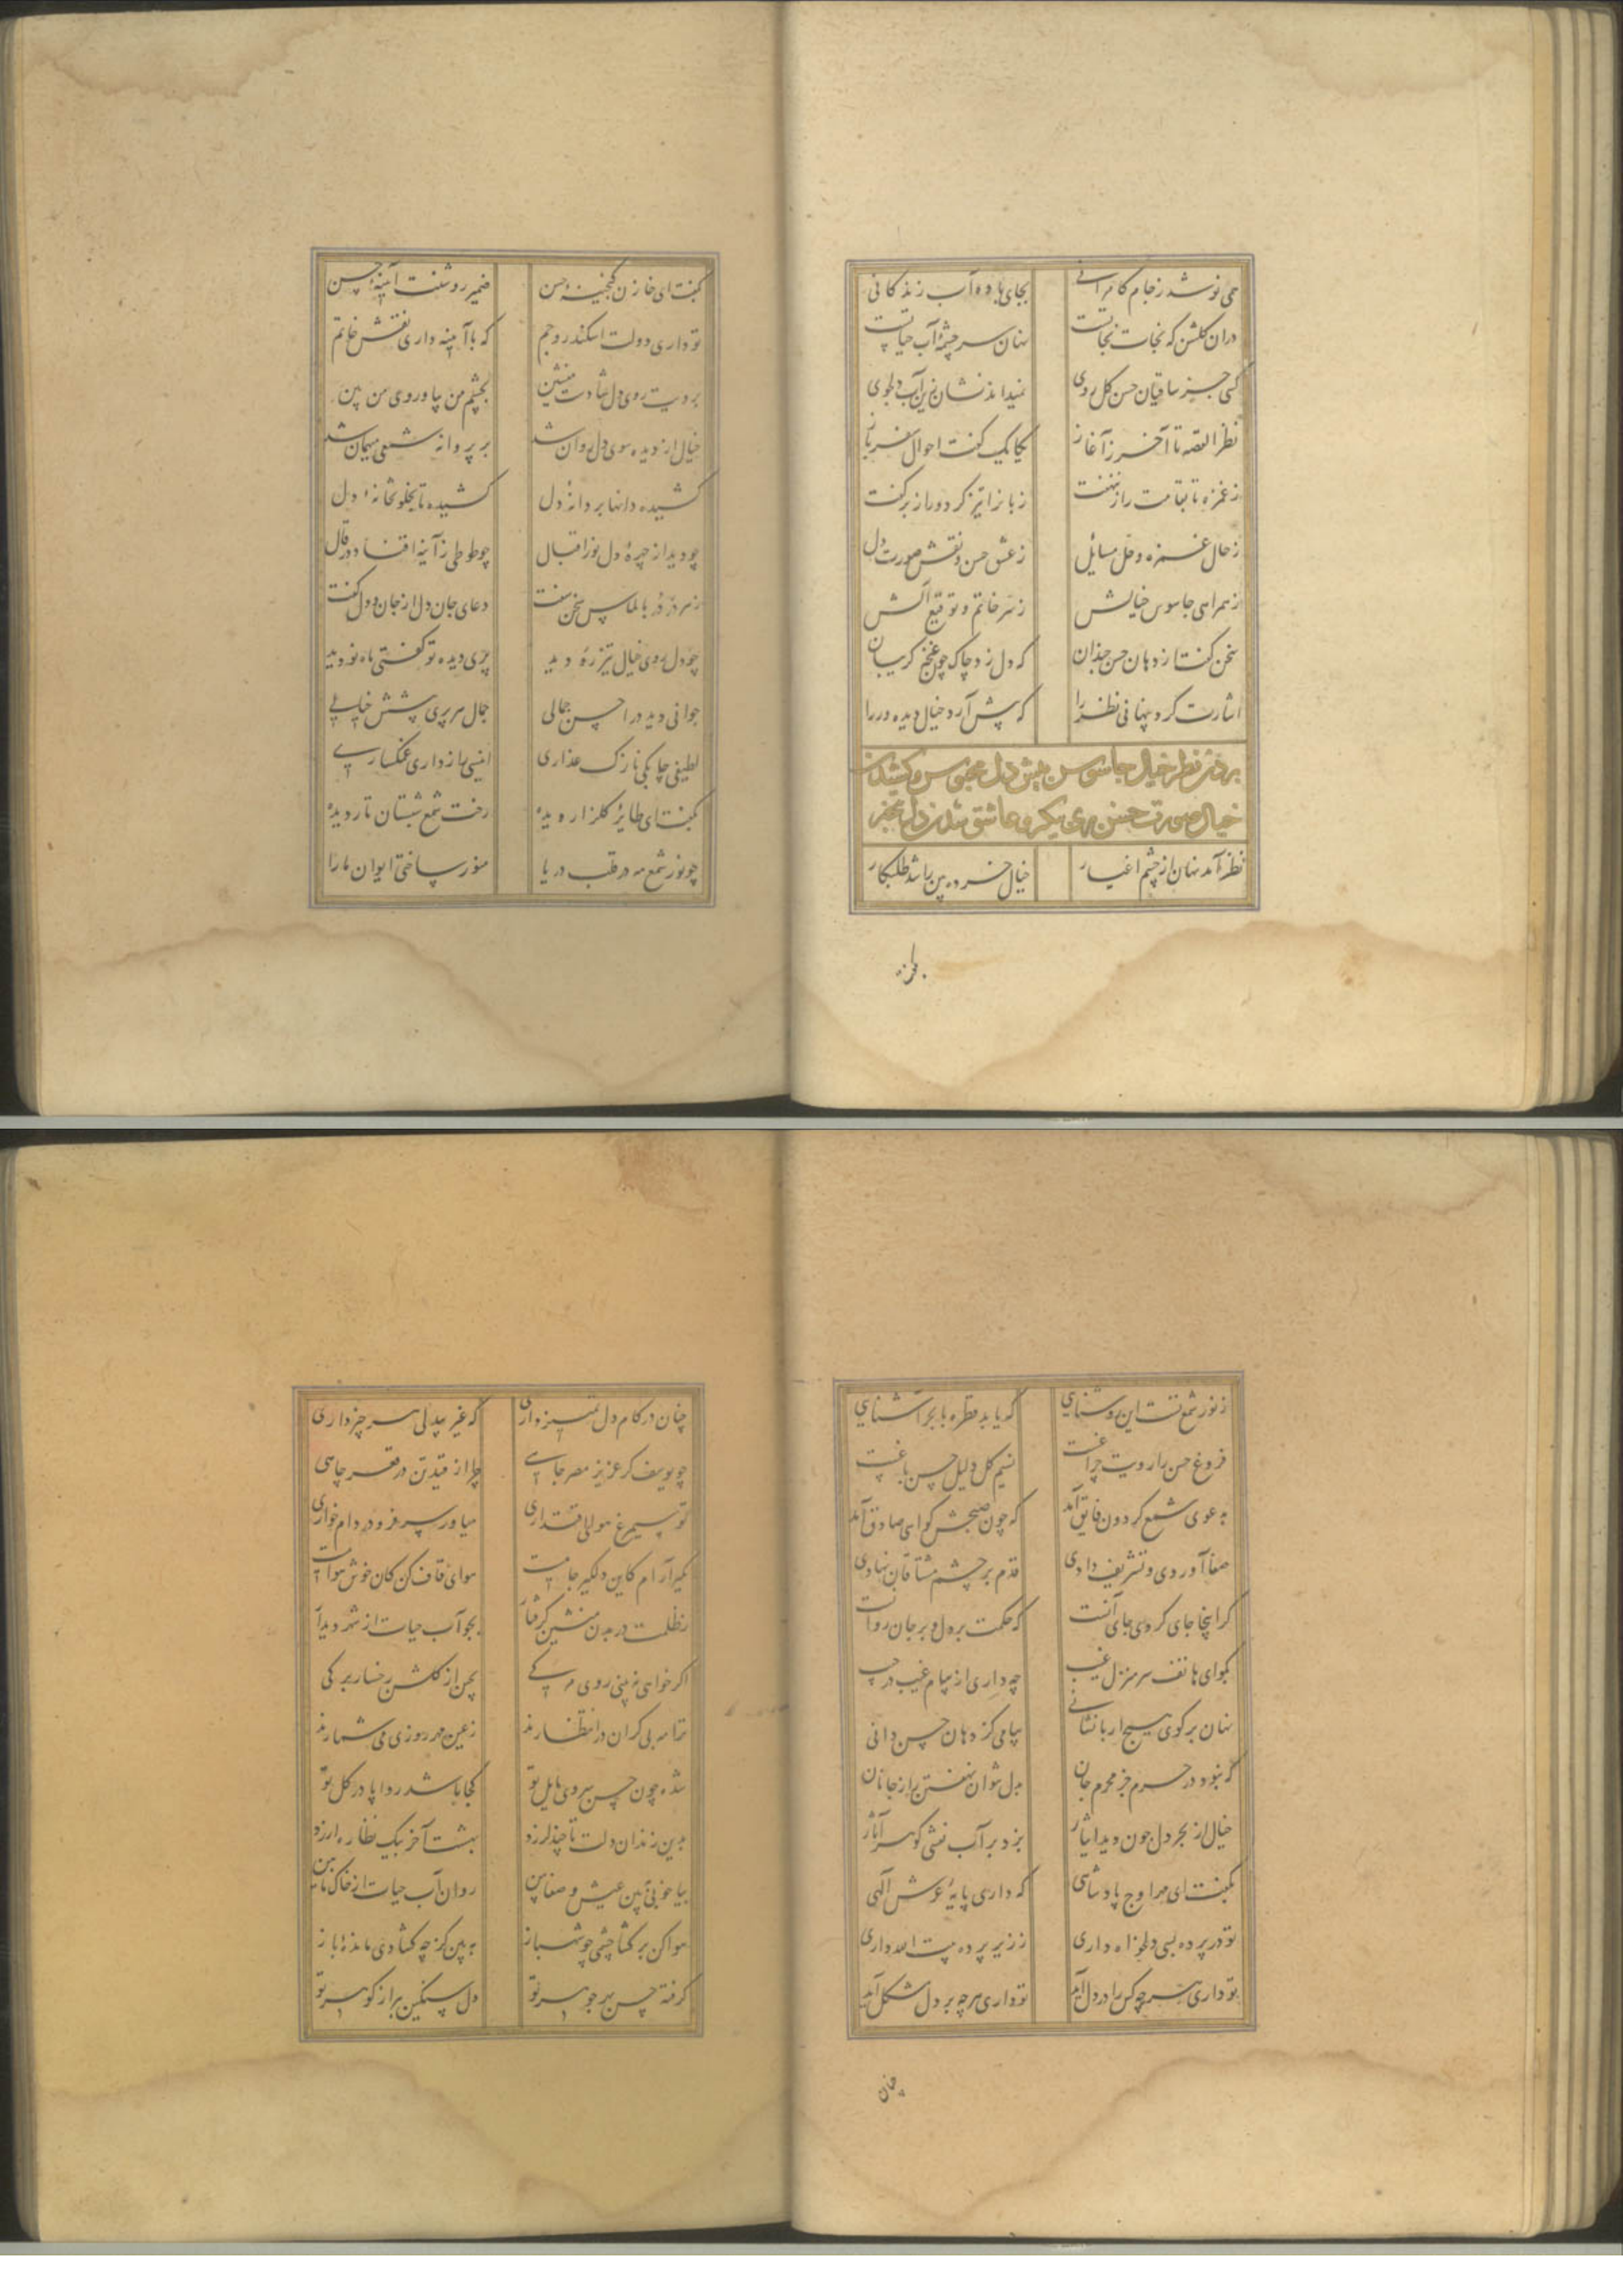 می نوشد ز جام کامرانی بجای باده آب زندگانی
دران گلشن که نجات نجاتست نهان سرچشمهٔ آب حیاتست
کسی جز ساقیان حسن گل روی نمیداند نشان زین آب دلجوی
نظر القصه تا آخر ز آغاز یکایک گفت احوال
ز غمزه تا بقامت راز نهفت زبانرا تیز کرد و راز برگفت
ز حال غمزه و حل مسایل ز عشق حسن و نقش صورت دل
ز همراهی جاسوس خیالش ز سر خاتم و توقیع آلش
سخن گفتا ز دهان حسن خندان که دل زد چاک چون غنچه گریبان
اشارت کرد پنهانی نظر را که پیش آرد خیال دیده ور را
بردن نظر خیال جاسوس پیش دل محبوس و کشیدن
خیال صورت حسن پری پیکر و عاشق شدن دل
نظر آمد نهان از چشم اغیار خیال خرده بین را شد طلبکار
بگفت ای خازن گنجینهٔ حسن ضمیر روشنت آیینهٔ حسن
تو داری دولت اسکندر و جم که با آیینه داری نقش خاتم
برویت روی دل شادست منشین بچشم من بیا و روی من بین
خیال از دیده سوی دل روان شد بر پروانه شمعی میهمان شد
کشیده دانها بر دانهٔ دل کشیده تا بخلوتخانهٔ دل
چو دید از چهرهٔ دل نور اقبال چو طوطی ز آینه افتاد در قال
ز سر در بالماس سخن سفت دعای جان دل از جان و دل گفت
چو دل روی خیال تیزره دید پری دیده تو گفتی ماه نو دید
جوانی دید در احسن جمالی جمال هر پری پیشش خیالی
لطیفی چابکی نازک عذاری انیسی رازداری غمگساری
بگفت ای طایر گلزار دیده رخت شمع شبستان تار دیده
چو نور شمع مه در قلب دریا منور ساختی ایوان ما را
ز نور شمع تست این روشنایی که یابد قطره با بحر آشنایی
فروغ حسن را رویت چراغست نسیم گل دلیل حسن باغست
بدعوی شمع گردون فایق آمد که چون صبحش گواهی صادق آمد
صفا آوردی و تشریف دادی قدم بر چشم مشتاقان نهادی
گر اینجا جای کردی جای آنست که حکمت بر دل و بر جان روانست
بگو ای هاتف سر منزل غیب چه داری از پیام غیب در جیب
نهان برگوی هیچ ار با نشانی پیامی کز دهان حسن دانی
که نبود در حرم جز محرم جان بدل نتوان نهفتن راز جانان
خیال از بحر دل چون دید ایثار بزد بر آب نقشی گوهر آثار
بگفت ای مه اوج پادشاهی که داری پایهٔ عرش الهی
تو در پرده بسی دلخواه داری ز زیر پرده
تو داری هر چه کس را در دل آید تو داری هر چه بر دل مشکل آید
چنان در کام دل تمییز داری که غیر بیدلی هر چیز داری
چو یوسف گر عزیز مصر جاهی چرا از قید تن در قعر چاهی
تو سیمرغ هوای اقتداری میاور سر فرو در دام خواری
مگیر آرام کاین دلگیر جایست هوای قاف کن کان خوش هوایست
ز ظلمت در بدن منشین گرفتار بجو آب حیات از شهر دیدار
اگر خواهی نبینی روی مه کی بچین از گلشن رخسار برگی
ترا مه پیکران در انتظارند ز عین مهر روزی می شمارند
شده چون حسن سروی مایل تو کجا باشد روا پا در گل تو
بدین زندان دلت تا چند لرزد بهشت آخر بیک نظاره ارزد
بیا خوبی ببین عیش و صفا بین روان آب حیات از خاک ما بین
هوا کن بر گشا چشمی چو شهباز ببین کز چه گشادی ماندهٔ باز
گرفته حسن بهر جوهر تو دل سنگین براز گوهر تو
چنان